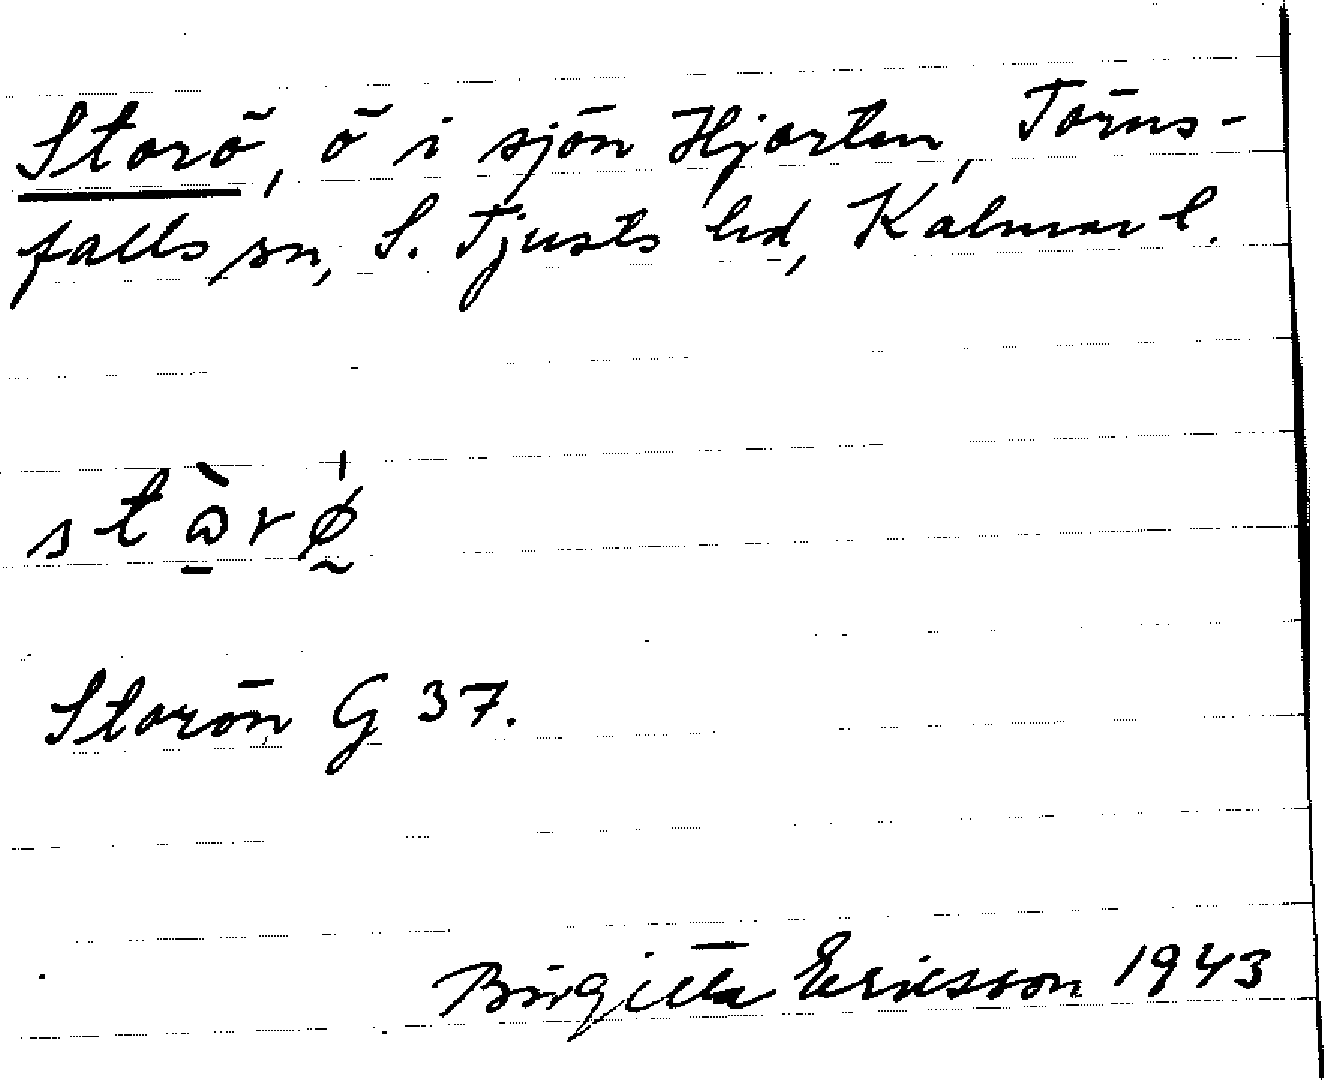 Storö, ö i sjön Hjorten, Törns-
falls sn, S. Tjusts hd, Kalmar l.
stὼ̲rø̰̍
Storön G 37.
Birgitta Ericsson 1943